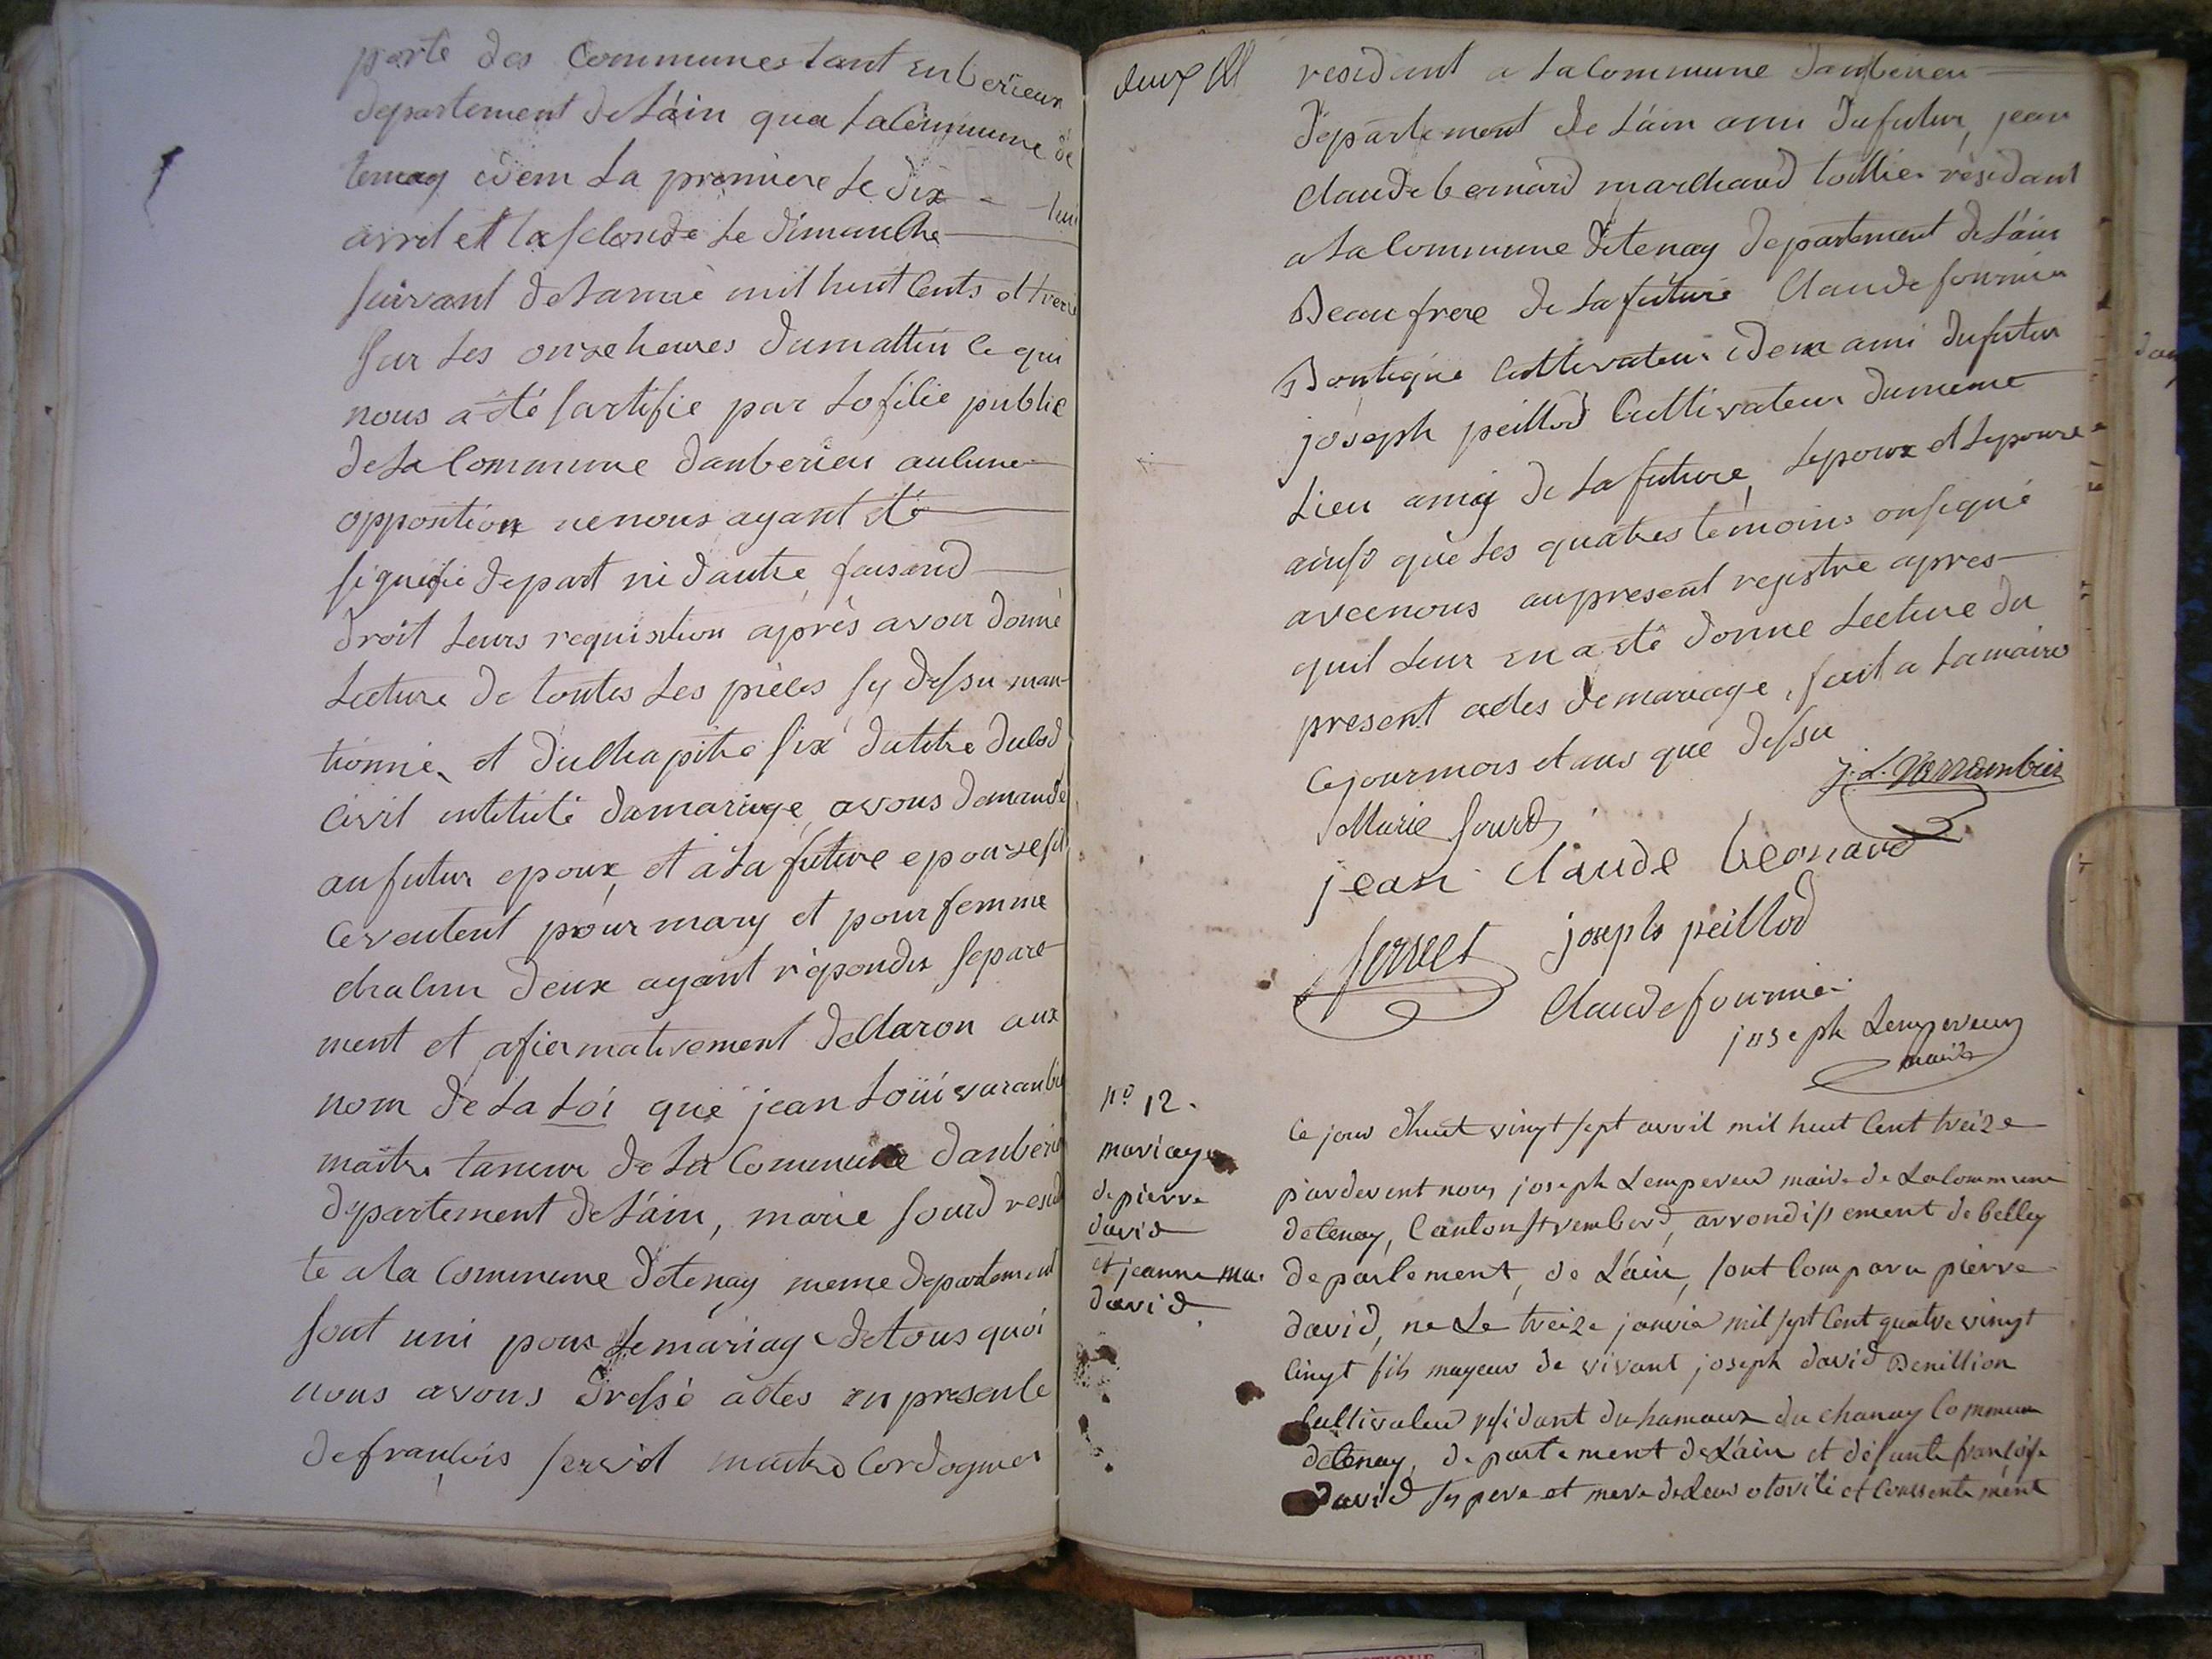 porte des Communes tant enberieux
departement de Láin qua La Commune de
tenay idem La premiere Le dix - huit
avril et la seconde Le dimanche
suivant de Lannée mil huit Cents et treize
sur Les onze heures du mattin ce qui
nous a été sartifié par Lofisié public
de La Commune danberieu aucune
opposition ne nous ayant été
signifié depart ni dautre, faisand
droit Leurs requisition après avoir donné
Lecture de toutes Les pièces sy dessu man-
tionné, et du Chapitre six du titre du Cod
Civil intitulé du mariage, avons demandé
au futur epoux, et à La future epouse sil
ce veulent pour mary et pour femme
chacun deux ayant répondu separé-
ment et afiermativement declaron aux
nom de La Loi que jean Loüi varanbié
maitre taneur de La Commune danberieu
departement de Láin, marie sourd resid
te a la Commune de tenay meme departement
sont uni pour Le mariage de tous quoi
nous avons dressé actes en presence
de francois servet maitre Cordognier
deux
resident a La Commune danberieu
département de Láin ami du futur, jean
Claude bernard marchand toillier résidant
a La Commune de tenay departement de Láin
Beau frere de La future Claude fournier
Boutiqué Cultivateur idem ami du futur
joseph peillod Cultivateur du meme
Lieu amy de La future, Lepoux et Lepouse
ainsi que Les quatres témoins onsigné
avec nous au present registre apres
quil Leur en a été donné Lecture du
present actes de mariage, fait a La mairie
Ce jour mois et ans que dessu
j. L. Varrambier
Marie sourd
jean Claude bernard
servet joseph peillod
Claude fournier
joseph Lempereur
maire
no 12.
mariage
de pierre
david
et jeanne ma.
david.
Ce jour dhuit vingt sept avril mil huit Cent treize
pardevent nous joseph Lempereur maire de La Commune
de tenay, Canton st rembert, arrondissement de belley
departement, de Láin, sont Comparu pierre
david, ne Le treize janvié mil sept Cent quatre vingt
Cinqt fils mayeur de vivant joseph david Benillion
Cultivateur residant du hamaux du chanay Commune
de tenay, departement de Láin et défunte françoise
david ses pere et mere de Leur otorité et Conssentement